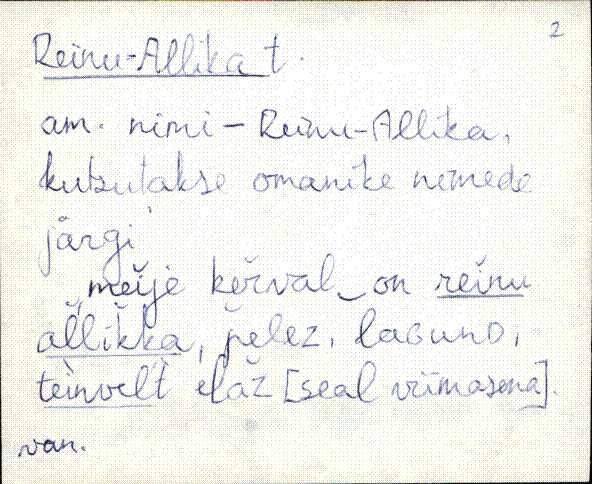 2
Reinu-Allika t.
am. nimi – Reinu-Allika,
kutsutakse omanike nimede
järgi
„meije kõrval on reinu
allikka, pelez, lagund,
teinvelt elaz [seal viimasena].
van.